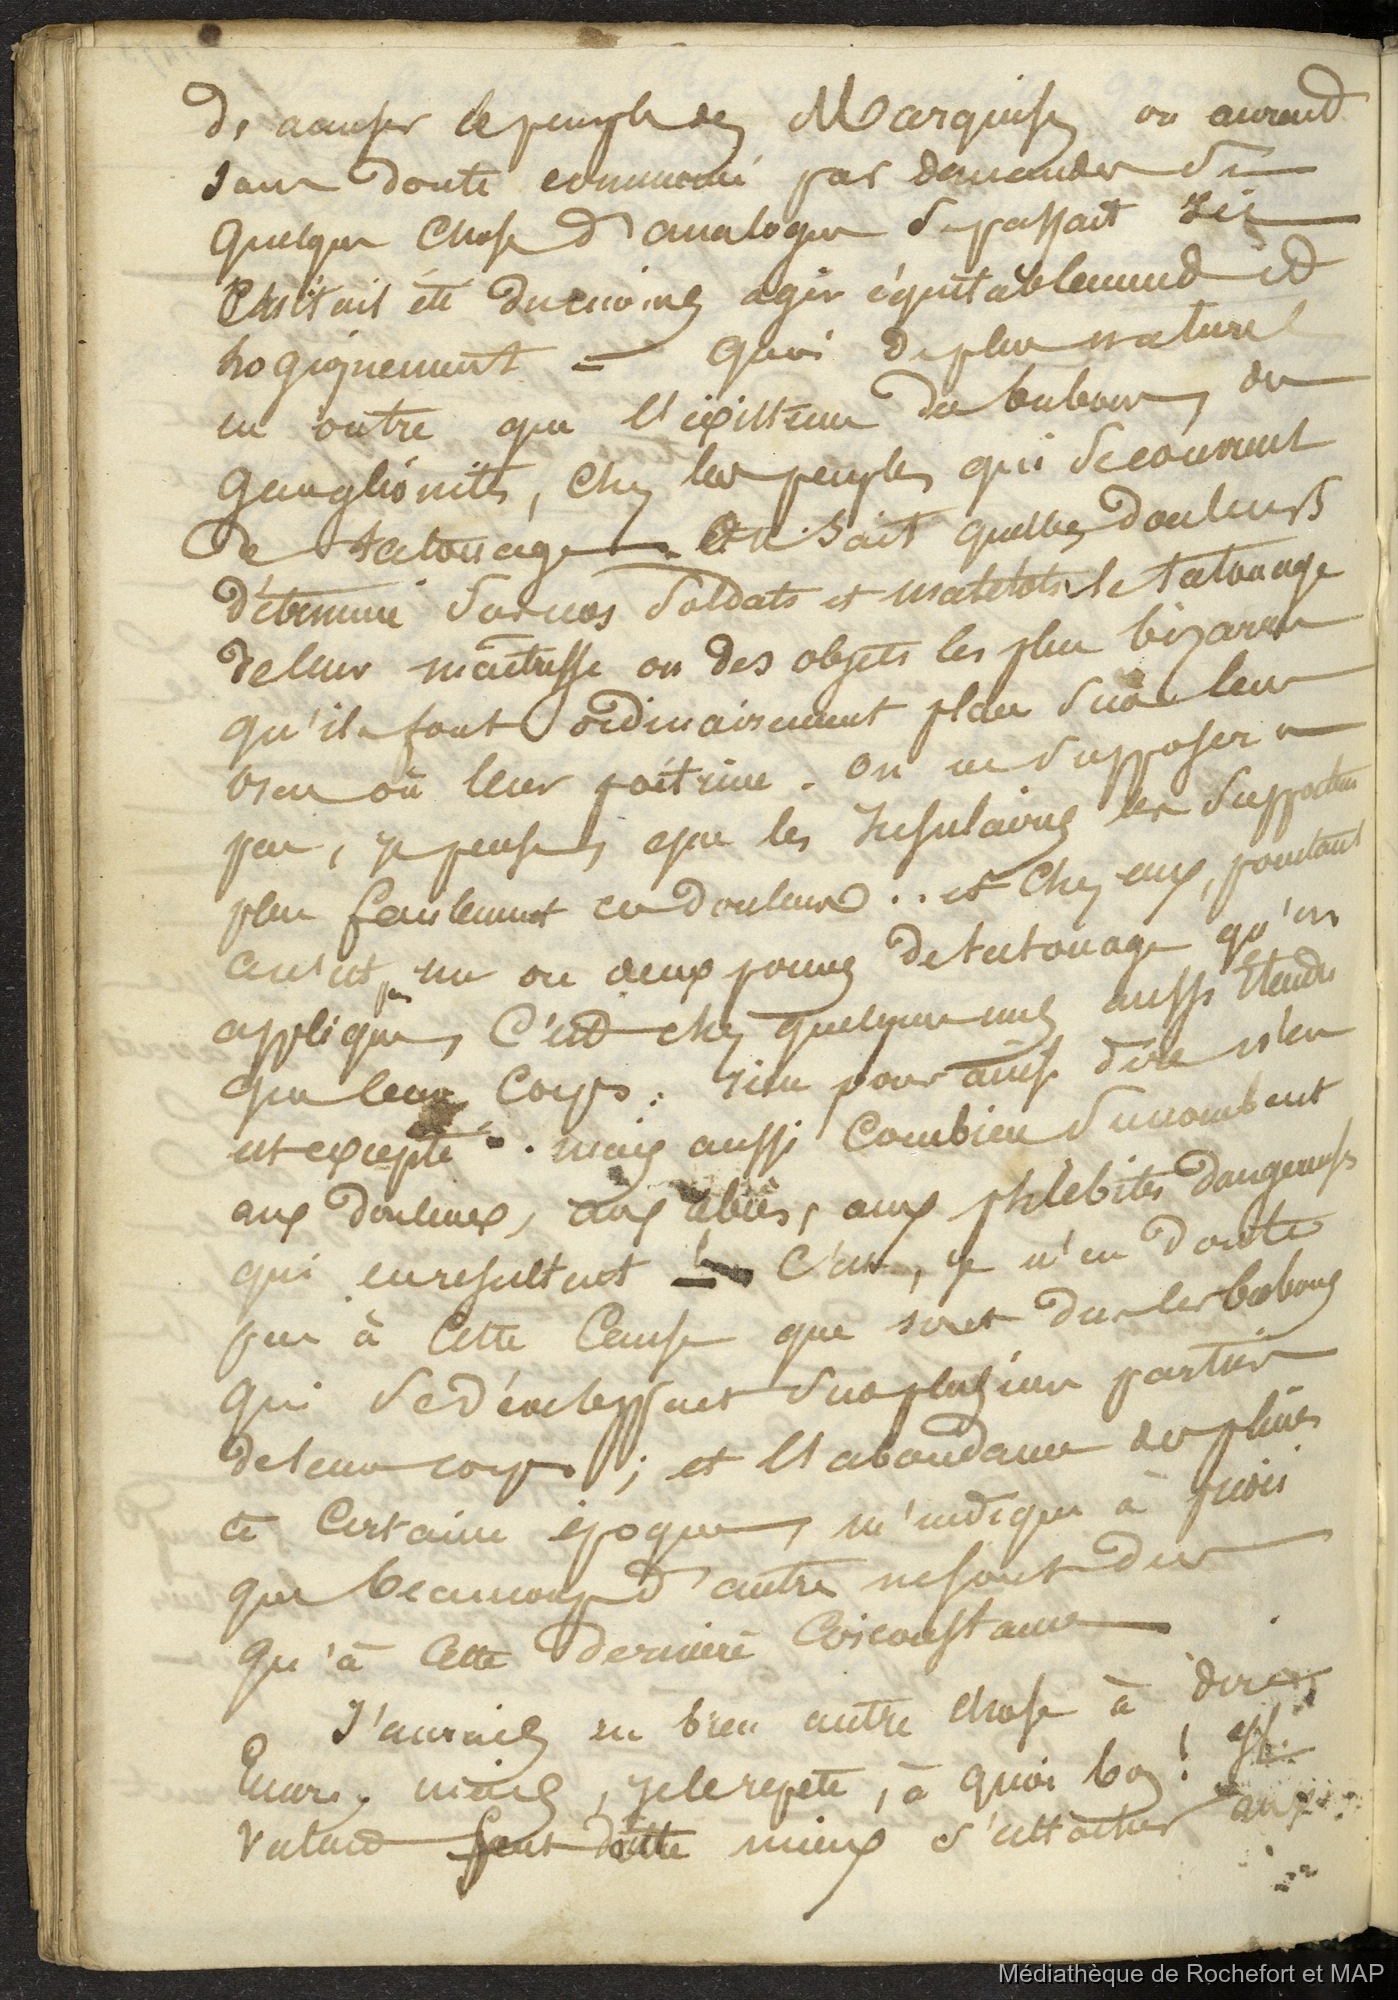 d'accuser le peuple des Marquises on aurait
sans doute commencé par demander si
quelque chose d'analogue se passait ici
C'eut été du moins agir équitablement et
logiquement = quoi de plus naturel
en outre que l'existence de bubons, de
ganglionites, chez les peuples qui se couvrent
de tatouages. On sait quelles douleurs
détermine sur nos soldats et matelots le tatouage
de leur maîtresse ou des objets les plus bizarres
qu'ils font ordinairement placer sur leur
bras où leur poitrine. On ne supposera
pas, je pense, que les Insulaires les supportent
plus facilement ces douleurs .. et chez eux, pourtant
ce n'est pas un ou deux pouces de tatouage qu'on
applique, C'est chez quelques uns aussi étendu
que leur corps. rien pour ainsi dire n'en
est excepté . mais aussi combien succombent
aux douleurs, aux abcès, aux phlébites dangereuses
qui en resultent C'est, je n'en doute
pas à cette cause que sont dus les bubons
qui se développent sur plusieurs parties
de leur corps ; et l'abondance des pluies
à certaine époque, m'indique à priori
que beaucoup d'autres ne sont dus
qu'à cette dernière circonstance
J'aurais eu bien autre chose à dire
Encore, mais, je le repete, à quoi bon !
valait sans doute mieux s'attacher aux
Médiathèque de Rochefort et MAP